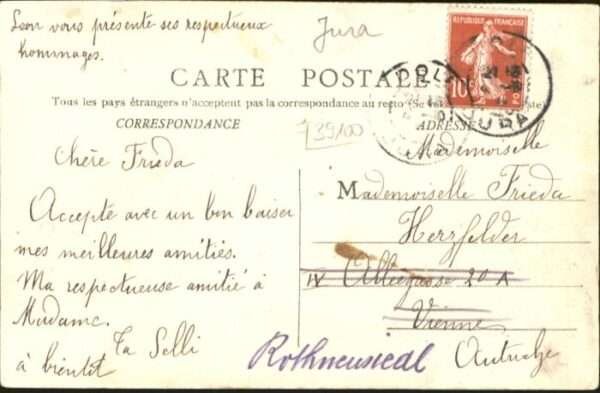 Leon vous présente ses respectueux
hommages.
Jura
RÉPUBLIQUE FRANÇAISE
10
CARTE POSTALE
DOLE
JURA
Tous les pays étrangers n'acceptent pas la correspondance au recto (Se
CORRESPONDANCE
ADRESSE
39100
Mademoiselle
Chère Frieda
Mademoiselle Frieda
Herzfelder
Accepté avec un bon baiser
mes meilleures amitiés.
IV Alleegasse 20 A
Ma respectueuse amitié à
Madame.
Vienne
Ta Selli
à bientôt
Rothneusiedl
Autriche